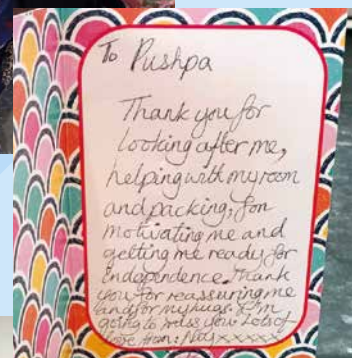 To Pushpa
Thank you for
looking after me,
helping with my room
and packing, for
motivating me and
getting me ready for
independence. Thank
you for reassuring me
and for my hugs. I'm
going to miss you. Lots of
love from: xxxxx